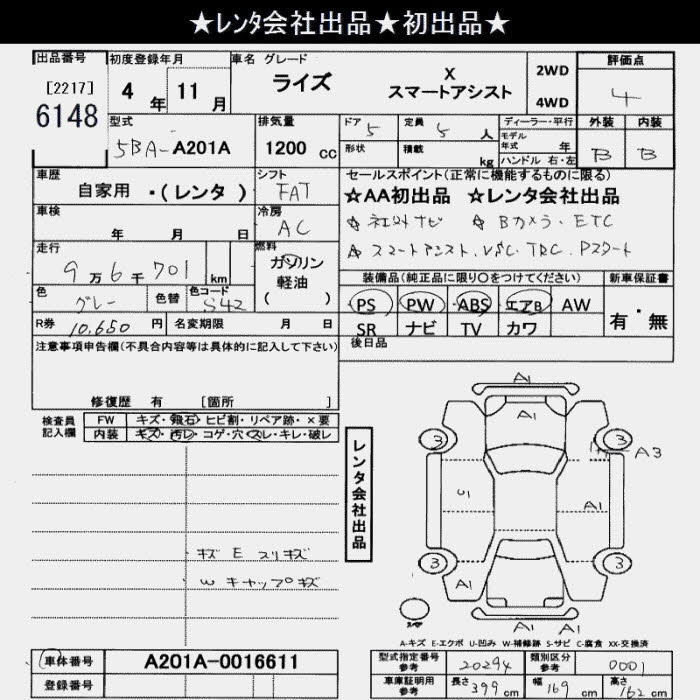 ★レンタ会社出品★初出品★
出品番号 初度登録年月 車名 グレード 評価点
[2217] 4年 11月 ライズ X スマートアシスト 2WD 4WD 4
6148 型式 排気量 ドア 5 定員 5人 ディーラー・平行 外装 内装
5BA-A201A 1200cc 形状 積載 kg モデル年式 年 ハンドル 右・左 B B
車歴 シフト セールスポイント(正常に機能するものに限る)
自家用 ・(レンタ) FAT ★AA初出品 ★レンタ会社出品
車検 年 月 日 冷房 AC ☆社外ナビ ☆Bカメラ・ETC
走行 燃料 ☆スマートアシスト.VSC.TRC.Pスタート
9万6千701km ガソリン 軽油 ( ) 装備品(純正品に限り○をつけてください) 新車保証書
色 グレー 色替 色コード S42 PS PW ABS エアB AW 有・無
R券 10,650円 名変期限 月 日 SR ナビ TV カワ
注意事項申告欄(不具合内容等は具体的に記入して下さい) 後日品
修復歴 有 [箇所 ]
検査員記入欄 FW キズ・飛石・ヒビ割・リペア跡・×要
内装 キズ・汚レ・コゲ・穴・スレ・キレ・破レ
レンタ会社出品
A1
A1
3 3
A3
U1 A1
3 3
A1
A1
A1 A1
キズ E スリキズ
W キャップキズ
A-キズ E-エクボ U-凹み W-補修跡 S-サビ C-腐食 XX-交換済
車体番号 A201A-0016611 型式指定番号参考 20294 類別区分参考 0001
登録番号 車庫証明用参考 長さ 399cm 幅 169cm 高さ 162cm